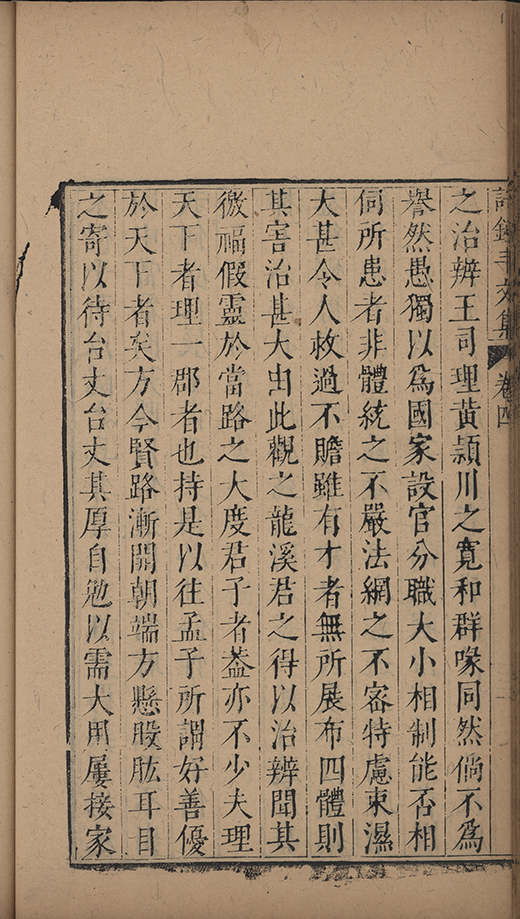 許鍾斗文集 卷四
之治辨王司理黃頴川之寬和群喙同然倘不爲
謷然愚獨以爲國家設官分職大小相制能否相
伺所患者非體統之不嚴法網之不密特慮束濕
大甚令人救過不贍雖有才者無所展布四體則
其害治甚大由此觀之龍溪君之得以治辨聞其
徼福假靈於當路之大度君子者葢亦不少夫理
天下者理一郡者也持是以往孟子所謂好善優
於天下者矣方今賢路漸開朝端方懸股肱耳目
之寄以待台丈台丈其厚自勉以需大用屢接家